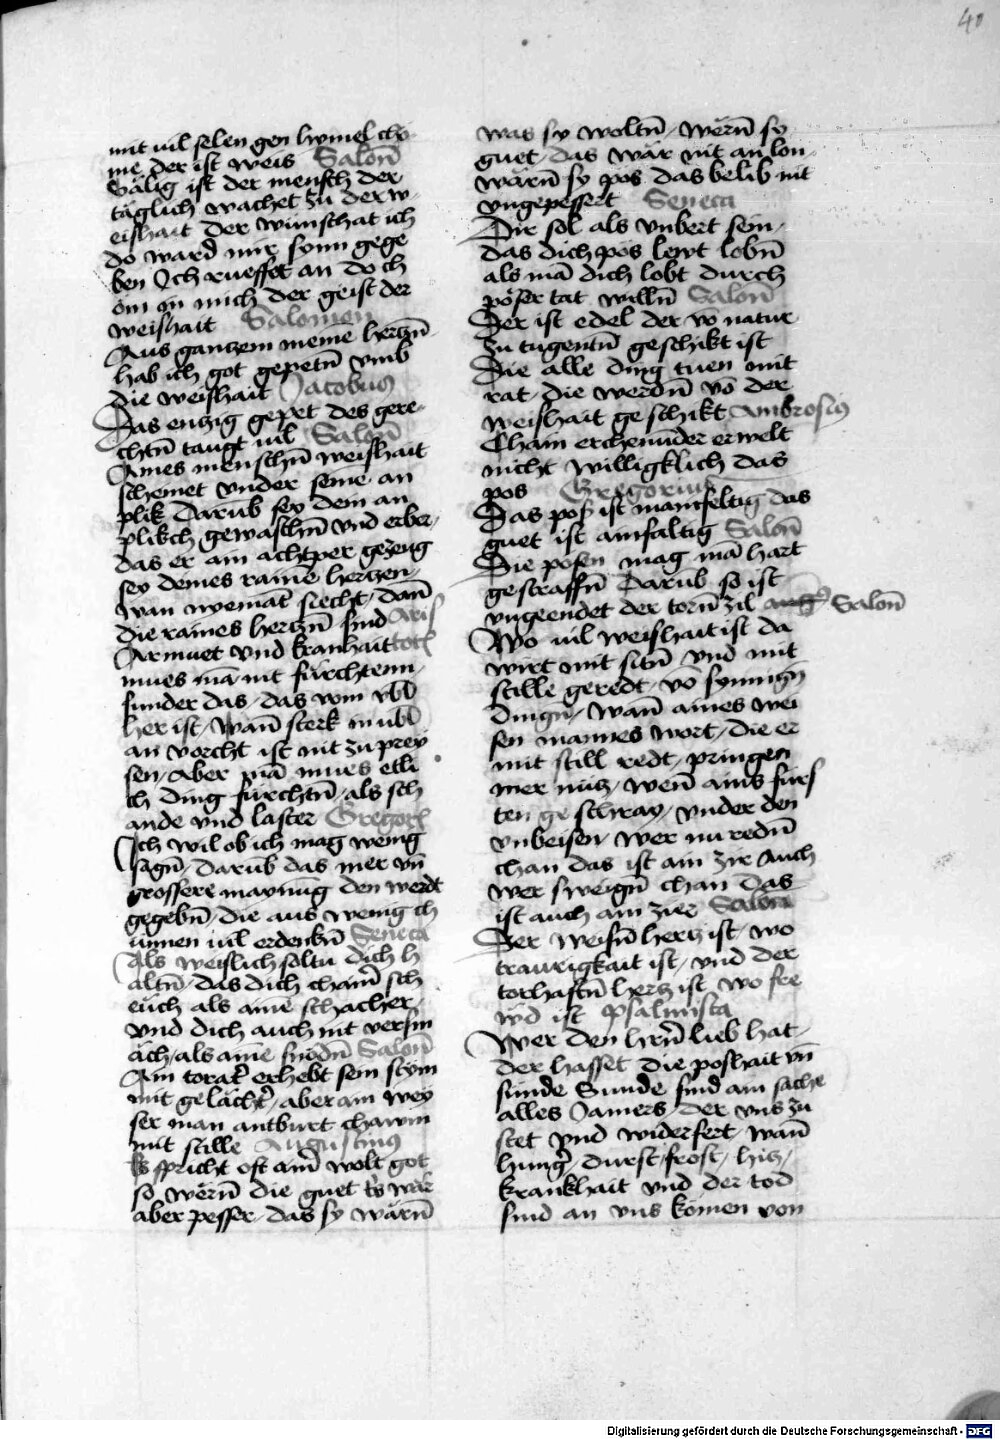 40
mit uil selen gen hymel chö
me der ist weis Salon̄
Sälig ist der mensch der
täglich wachet zu der w
eishait der wunschat ich
do ward mir synn gege
ben Ich rueffet an do ch
öm in mich der geist der
weishait Salomen
Aus ganczem meinē herczn̄
hab ich got gepetn̄ vmb
die weishait Jacobus
Das enzig gepet des gere
chtn̄ taugt uil Salon̄
Aines menschn̄ weishait
scheinet vnder seinē an
plik Darūb sey dem an
plikch gewaschn̄ vnd erber
das er ain achtper gezeug
sey deines rainē herczen
wan niemāt siecht dan̄
die raines herczn̄ sind Aris
Armuet vnd kranhait totl
mues mā nit fürchtenn
sunder das das vom vbl
her ist wan̄ sterk in vbl
an vorcht ist nit zu prey
sen aber mā mues etli
ch ding fürchtn̄ als sch
ande vnd laster Gregorl
Ich wil ob ich mag wenig
sagn̄ darūb das mer vn̄
grossere maynūg den werdt
gegebn̄ die aus wenig ch
ünnen uil erdenkn̄ Seneca
Als weislich soltu dich h
altn̄ das dich chainr̄ sch
euch als ainē schacher
vnd dich auch nit versm
äch als ainē snödn̄ Salon̄
Ain toratr̄ erhebt sein stym
mit gelächtr̄ aber ain wey
ser man antburt chawm
mit stille Augustinus
Es spricht oft ainr̄ wolt got
so wērn̄ die guet es wār
aber pesser das sy wārn̄
was sy woltn̄ wērn̄ sy
guet das wār nit an lon
wārn̄ sy pos das belib nit
vngepessert Seneca
Dir sol als vnbert sein
das dich pos lewt lobn̄
als mā dich lobt durch
pöser tat willn̄ Salon̄
Der ist edel der vō natur
zu tugentn̄ geschikt ist
Die alle ding tuen mit
rat die werdn̄ vō der
weishait geschikt Ambrosius
Chain erchennder erwelt
nicht willigklich das
pos Gregorius
Das pos ist manifeltig das
guet ist ainfaltig Salon̄
Die posen mag mā hart
gestraffn̄ Darūb so ist
vngeendet der torn̄ zil Salon̄
Wo uil weishait ist da
wirt mit sitn̄ vnd mit
stille geredt vō synnign̄
dingn̄ Wan̄ aines wei
sen mannes wort die er
mit still redt pringen
mer nücz wen̄ ains fürs
ten geschray vnder den
vnbeisen Wer nu redn̄
chan das ist ain zir Auch
wer sweign̄ chan Das
ist auch ain zier Salon
Der weisn̄ hercz ist wo
traurigkait ist vnd der
torhaftn̄ hercz ist wo fre
wd ist Psalmista
Wer den hrn̄ lieb hat
der hasset die poshait vn̄
sünde Sunde sind ain sache
alles Jamers der vns zu
stet vnd widerfert wan̄
hungr̄ durst frost hicz
krankhait vnd der tod
sind an vns kömen von
Digitalisierung gefördert durch die Deutsche Forschungsgemeinschaft - DFG